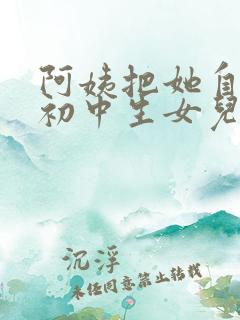 阿姨把她自
初中生女兒
沉浮
未经同意禁止转载